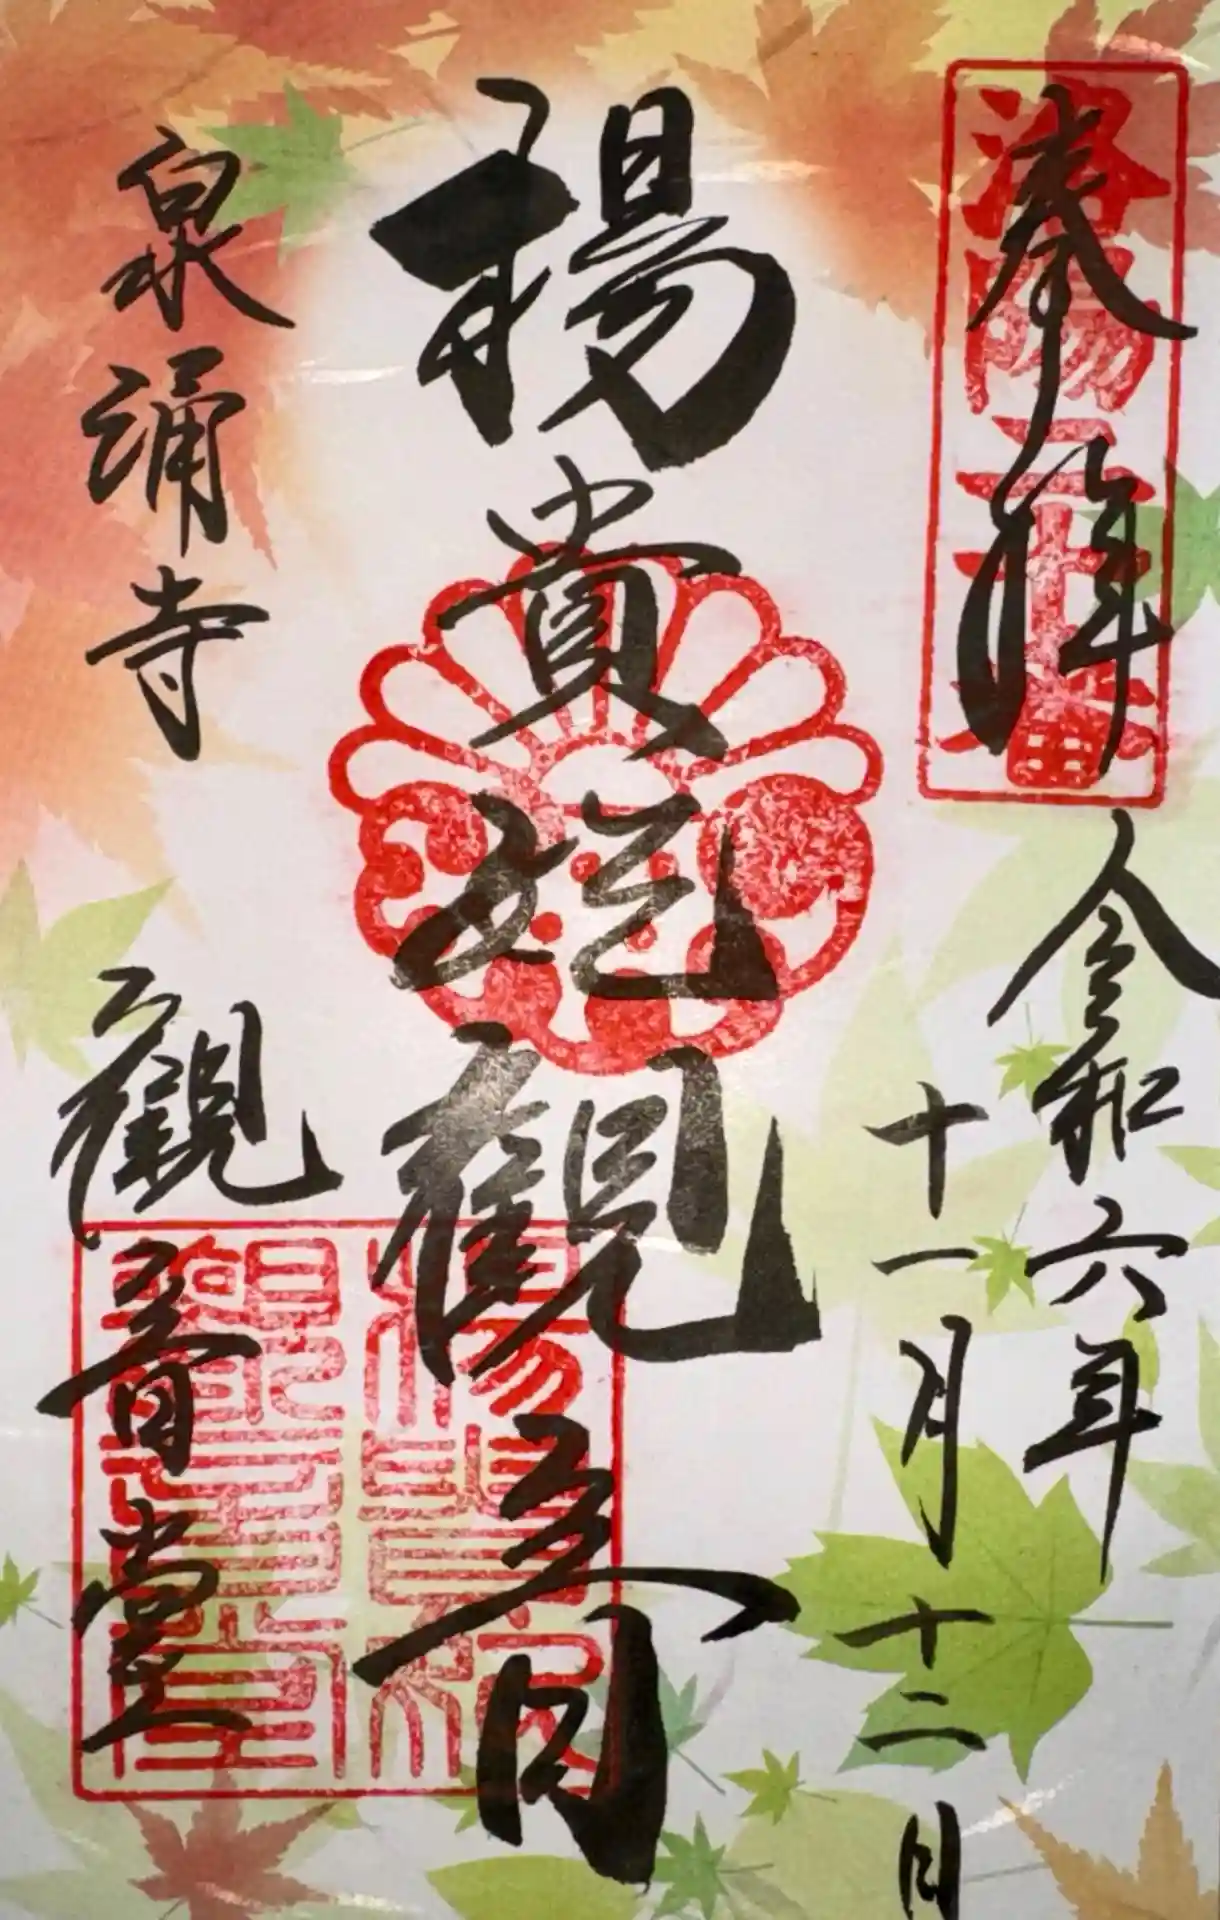 奉拝
洛陽二十番
令和六年
十一月十二日
楊貴妃観音
泉涌寺
観音堂
楊貴妃観音堂